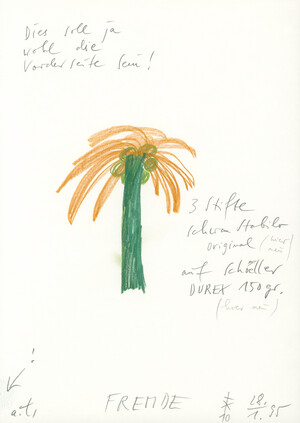 Dies soll ja
wohl die
Vorderseite sein!
3 Stifte
Schwan Stabilo
Original (hier
neu)
auf Schöller
DUREX 150 gr.
(hier neu)
!
a.t.
FREMDE
10
28.
1.95